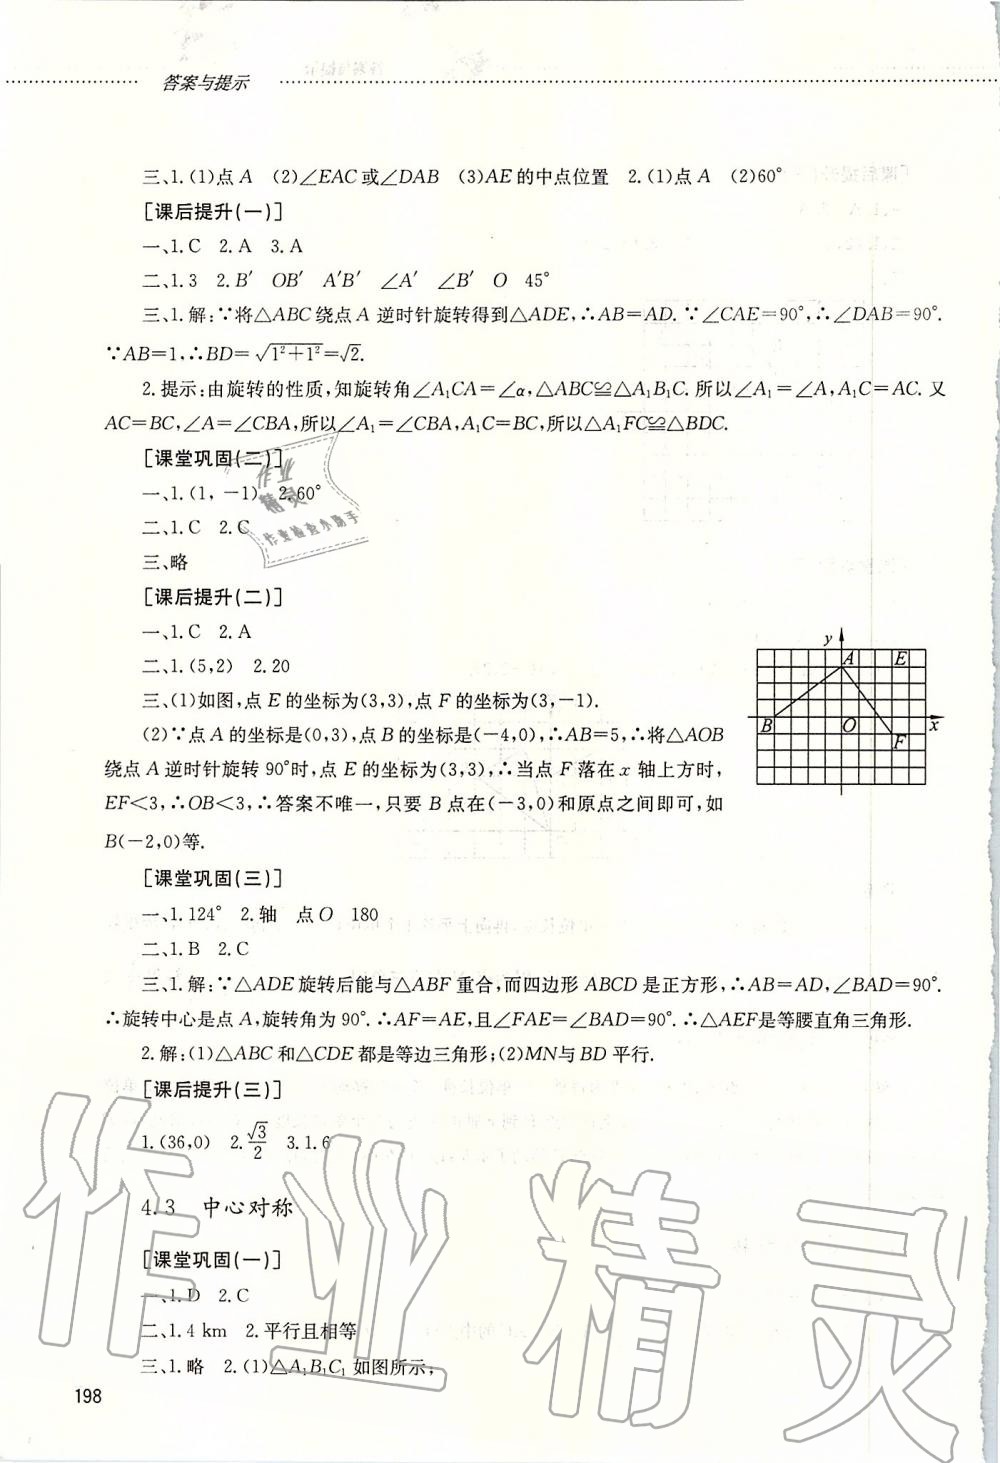 答案与提示
三、1.(1)点A (2)∠EAC或∠DAB (3)AE的中点位置 2.(1)点A (2)60°
[课后提升(一)]
一、1.C 2.A 3.A
二、1.3 2.B′ OB′ A′B′ ∠A′ ∠B′ O 45°
三、1.解:∵将△ABC绕点A逆时针旋转得到△ADE,∴AB=AD.∵∠CAE=90°,∴∠DAB=90°.
∵AB=1,∴BD=√(1²+1²)=√2.
2.提示:由旋转的性质,知旋转角∠A₁CA=∠α,△ABC≌△A₁B₁C.所以∠A₁=∠A,A₁C=AC.又
AC=BC,∠A=∠CBA,所以∠A₁=∠CBA,A₁C=BC,所以△A₁FC≌△BDC.
[课堂巩固(二)]
一、1.(1,-1) 2.60°
二、1.C 2.C
三、略
[课后提升(二)]
一、1.C 2.A
二、1.(5,2) 2.20
三、(1)如图,点E的坐标为(3,3),点F的坐标为(3,-1).
(2)∵点A的坐标是(0,3),点B的坐标是(-4,0),∴AB=5,∴将△AOB
绕点A逆时针旋转90°时,点E的坐标为(3,3),∴当点F落在x轴上方时,
EF<3,∴OB<3,∴答案不唯一,只要B点在(-3,0)和原点之间即可,如
B(-2,0)等.
y
A E
B O x
F
[课堂巩固(三)]
一、1.124° 2.轴 点O 180
二、1.B 2.C
三、1.解:∵△ADE旋转后能与△ABF重合,而四边形ABCD是正方形,∴AB=AD,∠BAD=90°.
∴旋转中心是点A,旋转角为90°.∴AF=AE,且∠FAE=∠BAD=90°.∴△AEF是等腰直角三角形.
2.解:(1)△ABC和△CDE都是等边三角形;(2)MN与BD平行.
[课后提升(三)]
1.(36,0) 2.√3/2 3.1.6
4.3 中心对称
[课堂巩固(一)]
一、1.D 2.C
二、1.4 km 2.平行且相等
三、1.略 2.(1)△A₁B₁C₁如图所示;
198
精灵
作业检查小助手
作业精灵